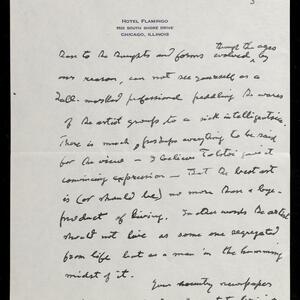 3
HOTEL FLAMINGO
5520 SOUTH SHORE DRIVE
CHICAGO, ILLINOIS
through the ages
Due to the thoughts and forms evolved, by
our reason, can not see yourself as a
hall-marked professional peddling the wares
of the artist groups to a sick intelligentsia.
There is much, perhaps everything to be said
for the view — I believe Tolstoi gave it
convincing expression — that the best art
is (or should be) no more than a bye-
product of living. In other words the artist
should not live as some one segregated
from life but as a man in the humming
midst of it.
Your country newspaper